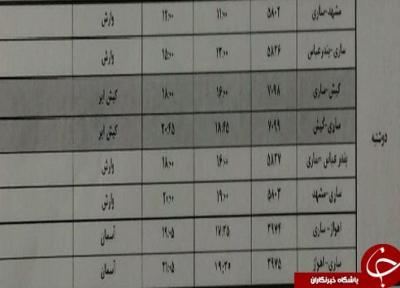 مشهد-ساری ۵۸۰۲ ۱۱:۰۰ ۱۲:۰۰ وارش
ساری-بندرعباس ۵۸۲۶ ۱۳:۰۰ ۱۵:۰۰ وارش
کیش-ساری ۷۰۹۸ ۱۶:۰۰ ۱۸:۰۰ کیش ایر
ساری-کیش ۷۰۹۹ ۱۸:۴۵ ۲۰:۴۵ کیش ایر
دوشنبه
بندر عباس-ساری ۵۸۲۷ ۱۶:۰۰ ۱۸:۰۰ وارش
ساری-مشهد ۵۸۰۳ ۱۹:۰۰ ۲۰:۰۰ وارش
اهواز-ساری ۳۹۷۴ ۱۷:۳۵ ۱۹:۰۵ آسمان
ساری-اهواز ۳۹۷۵ ۱۹:۳۵ ۲۱:۰۵ آسمان
باشگاه خبرنگاران